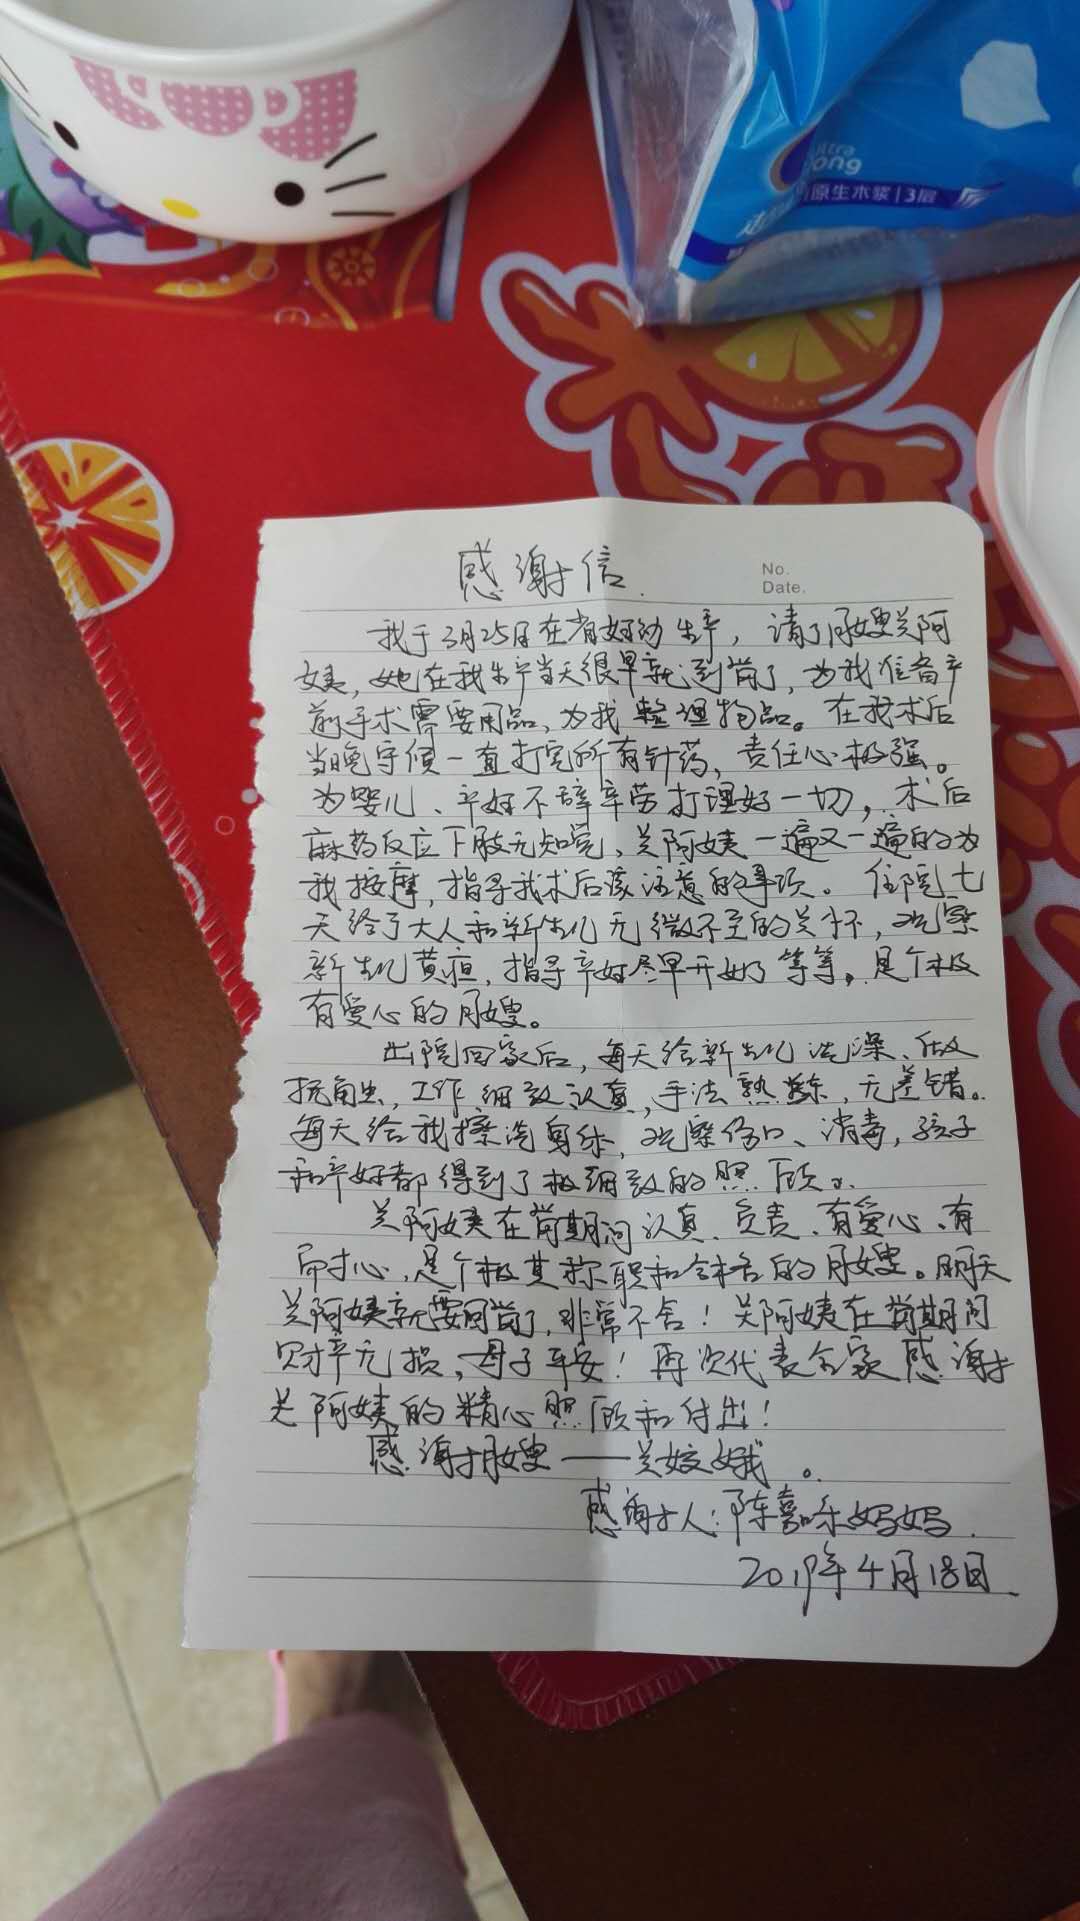 原生木浆|3层
感谢信.
No.
Date.
我于3月25日在省妇幼生产，请了月嫂关阿
姨，她在我生产当天很早就到岗了，为我准备产
前手术需要用品，为我整理物品。在我术后
当晚守候一直打完所有针药，责任心极强。
为婴儿、产妇不辞辛劳打理好一切，术后
麻药反应下肢无知觉，关阿姨一遍又一遍的为
我按摩，指导我术后该注意的事项。住院七
天给了大人和新生儿无微不至的关怀，观察
新生儿黄疸，指导产妇尽早开奶等等。是个极
有爱心的月嫂。
出院回家后，每天给新生儿洗澡、做
抚触，工作细致认真，手法熟练，无差错。
每天给我擦洗身体，观察伤口、消毒，孩子
和产妇都得到了极细致的照顾。
关阿姨在岗期间认真、负责、有爱心、有
耐心，是个极其称职和合格的月嫂。明天
关阿姨就要离岗了，非常不舍！关阿姨在岗期间
财产无损，母子平安！再次代表全家感谢
关阿姨的精心照顾和付出！
感谢月嫂——关姣娥。
感谢人：陈嘉乐妈妈.
2019年4月18日.